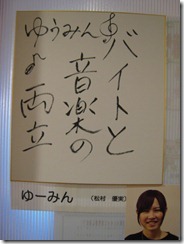 バイトと
音楽の
両立
ゆうみん
ゆーみん (松村 優実)